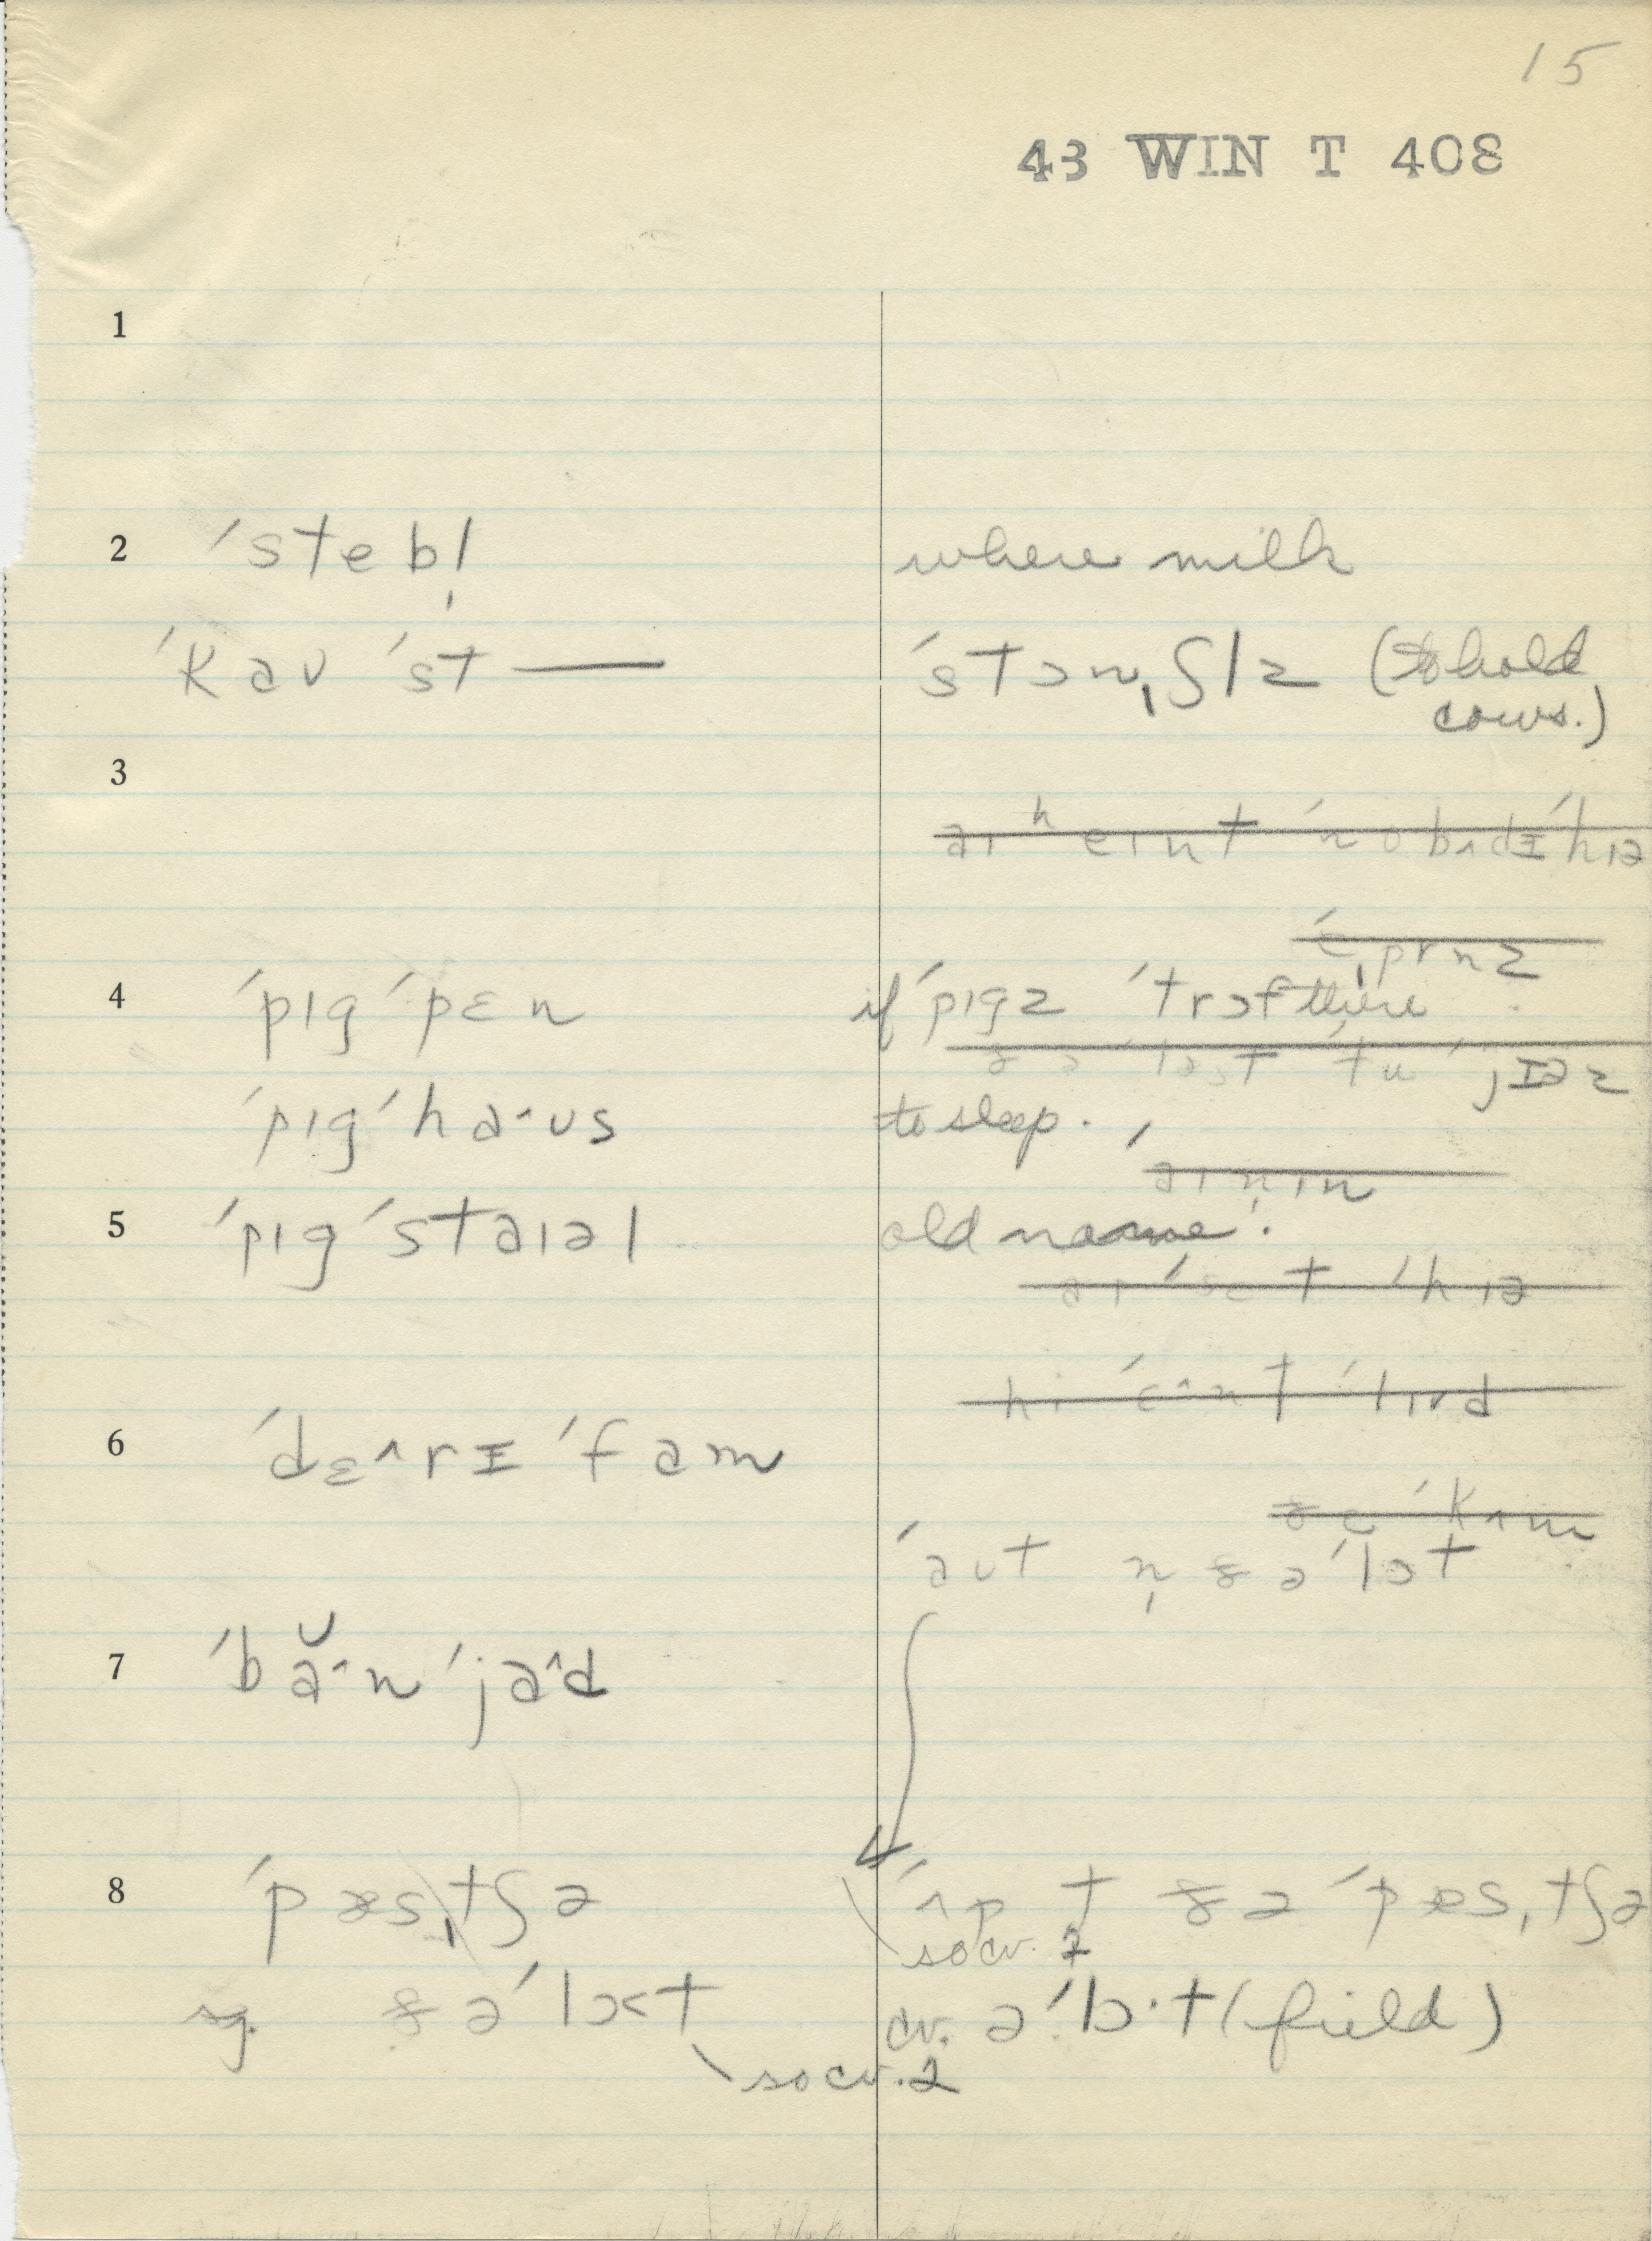 15
43 WIN T 408
1
2 ˈstebl̩ where milk
ˈkaʊ ˈst— ˈstɔnˌʃlz (to hold
cows.)
3
aɪ ʰeɪnt ˈnobʌdɪ ˈhɪə
ˈeˌprnz
4 ˈpɪg ˈpɛn if ˈpɪgz ˈtrɔf there
ðə ˈlast ˈtu ˈjɪəz
ˈpɪg ˈha^ʊs to sleep.
5 ˈpɪg ˈstaɪəl old name.
ˈhɪə
6 ˈdɛ^rɪ ˈfam
ðe ˈkʌm
ˈaʊt n̩ ðə ˈlɔt
7 ˈbă^n ˈja^d
8 ˈpæsˌtʃə ˈʌp t ðə ˈpæsˌtʃə
so cv. 2
sg. ðə ˈlɔ<t cv. ə ˈlɔ·t (field)
so cv. 2